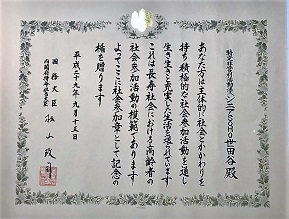 特定非営利活動法人シニアSOHO世田谷 殿
あなた方は主体的に社会とかかわりを
持ち積極的な社会参加活動を通し
生き生きと充実した生活を送られています
これは長寿社会における高齢者の
社会参加活動の模範であります
よってここに社会参加章として記念の
楯を贈ります
平成二十九年九月十五日
国務大臣
内閣府特命担当大臣
松山政司